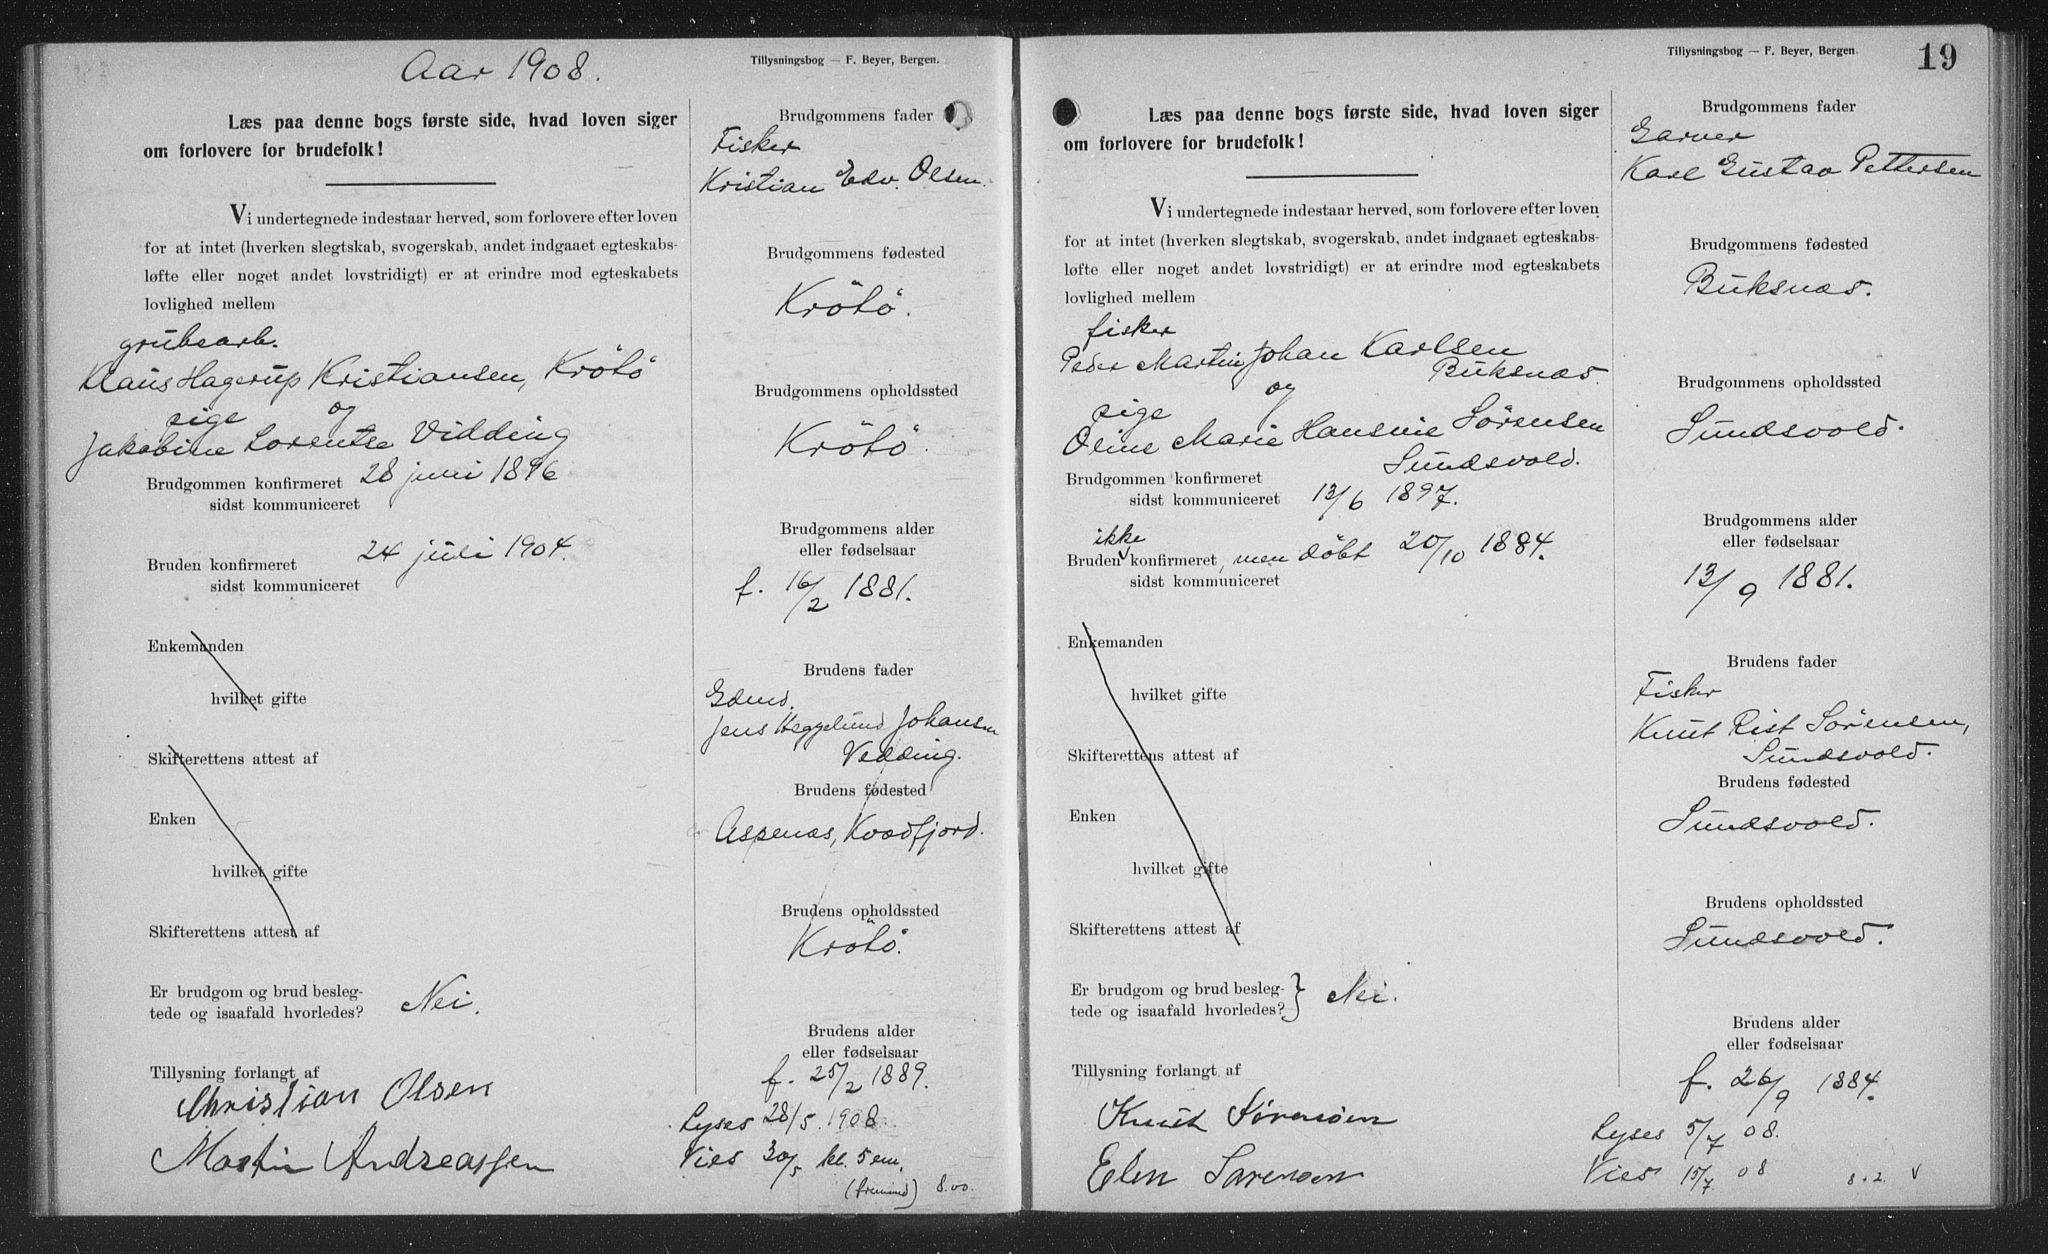 Aar 1908.
Tillysningsbog — F. Beyer, Bergen.
Læs paa denne bogs første side, hvad loven siger
om forlovere for brudefolk!
Vi undertegnede indestaar herved, som forlovere efter loven
for at intet (hverken slegtskab, svogerskab, andet indgaaet egteskabs-
løfte eller noget andet lovstridigt) er at erindre mod egteskabets
lovlighed mellem
grubearb.
Klaus Hagerup Kristiansen, Krötö
pige og
Jakobine Lorentse Vidding
Brudgommen konfirmeret 28 juni 1896
sidst kommuniceret
Bruden konfirmeret 24 juli 1904.
sidst kommuniceret
Enkemanden
hvilket gifte
Skifterettens attest af
Enken
hvilket gifte
Skifterettens attest af
Er brudgom og brud besleg-
tede og isaafald hvorledes? Nei.
Tillysning forlangt af
Christian Olsen
Martin Andreassen
Brudgommens fader
Fisker
Kristian Edv. Olsen.
Brudgommens fødested
Krötö.
Brudgommens opholdssted
Krötö.
Brudgommens alder
eller fødselsaar
f. 16/2 1881.
Brudens fader
Gdmd.
Jens Heggelund Johansen
Vedding.
Brudens fødested
Aspenæs, Kvædfjord.
Brudens opholdssted
Krötö.
Brudens alder
eller fødselsaar
f. 25/2 1889.
Lyses 28/5 1908.
Vies 30/5 kl. 5 em.
8.00
Tillysningsbog — F. Beyer, Bergen.
19
Læs paa denne bogs første side, hvad loven siger
om forlovere for brudefolk!
Vi undertegnede indestaar herved, som forlovere efter loven
for at intet (hverken slegtskab, svogerskab, andet indgaaet egteskabs-
løfte eller noget andet lovstridigt) er at erindre mod egteskabets
lovlighed mellem
fisker
Peder Martin Johan Karlsen
Buksnæs.
pige og
Oline Marie Hansine Sörensen
Sundsvold.
Brudgommen konfirmeret
sidst kommuniceret 13/6 1897.
ikke
Bruden konfirmeret, men döbt 20/10 1884.
sidst kommuniceret
Enkemanden
hvilket gifte
Skifterettens attest af
Enken
hvilket gifte
Skifterettens attest af
Er brudgom og brud besleg-
tede og isaafald hvorledes? } Nei.
Tillysning forlangt af
Knut Sørensen
Elen Sørensen
Brudgommens fader
Garver
Karl Gustav Pettersen
Brudgommens fødested
Buksnæs.
Brudgommens opholdssted
Sundsvold.
Brudgommens alder
eller fødselsaar
13/9 1881.
Brudens fader
Fisker
Knut Rist Sörensen,
Sundsvold.
Brudens fødested
Sundsvold.
Brudens opholdssted
Sundsvold.
Brudens alder
eller fødselsaar
f. 26/9 1884.
Lyses 5/7 08.
Vies 15/7 08
8.2. v